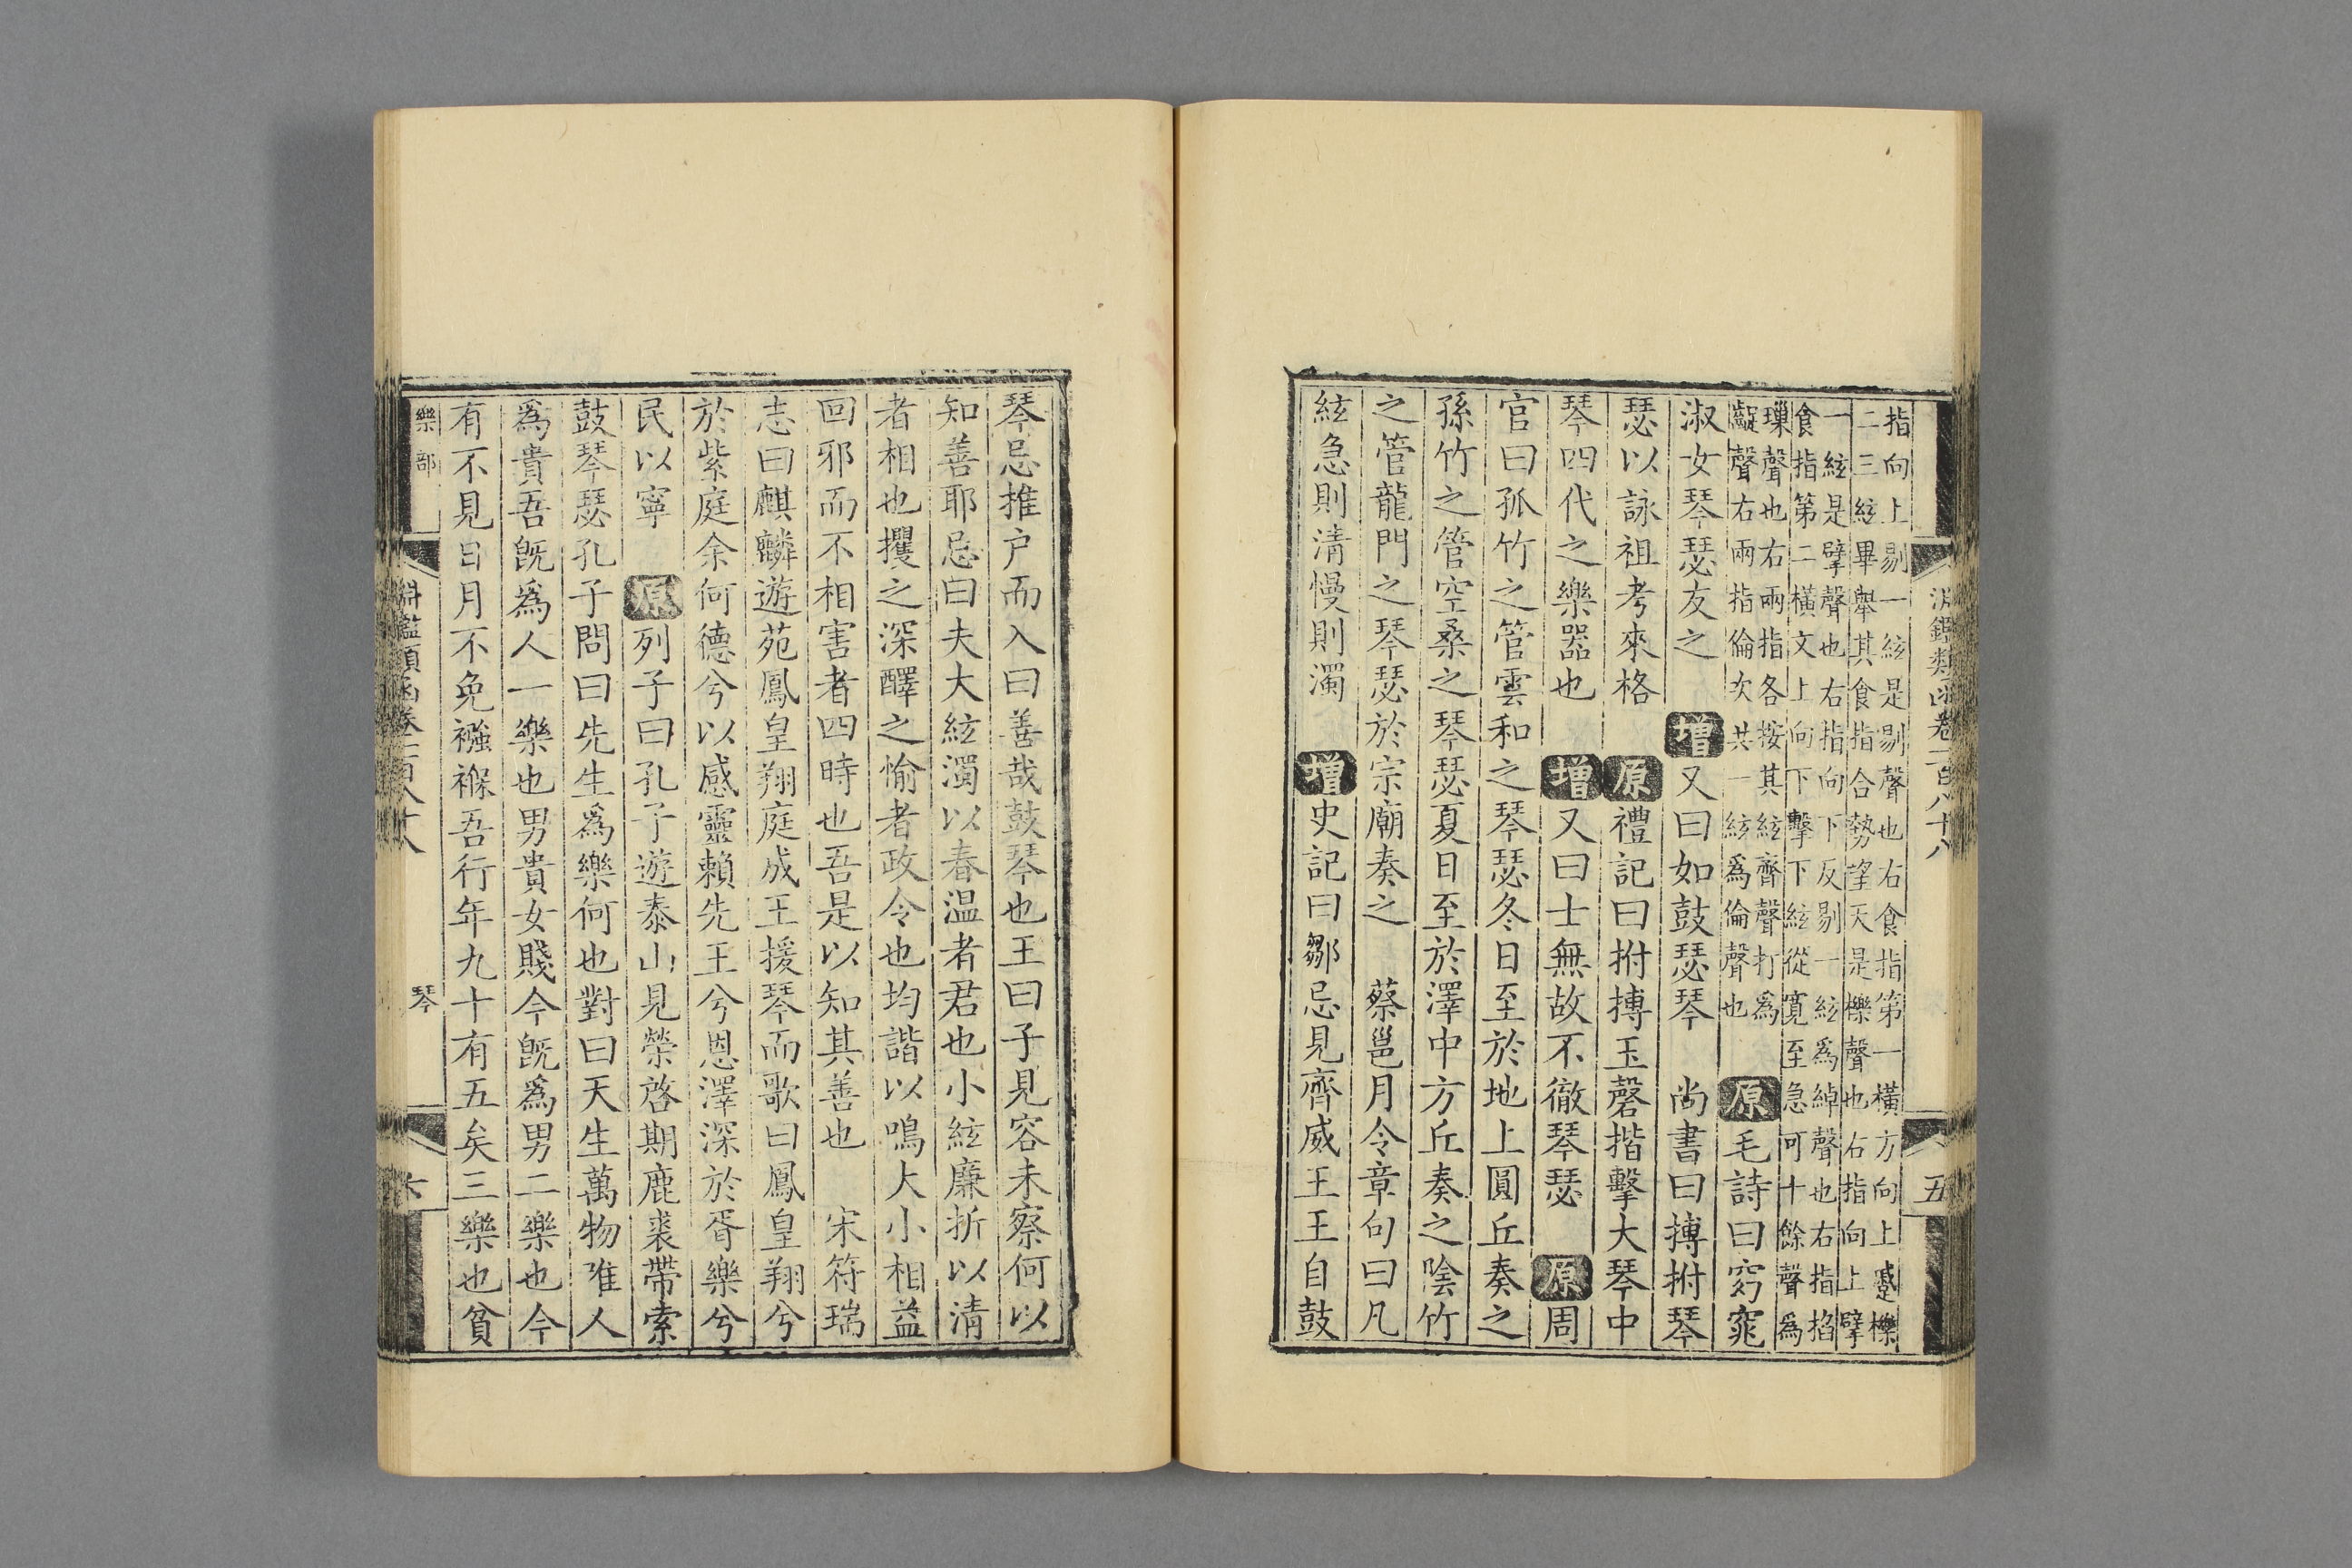 淵鑑類函卷一百八十八
五
指向上剔一絃是剔聲也右食指第一橫方向上蹙櫟
二三絃畢舉其食指合勢望天是櫟聲也右指向上擘
一絃是擘聲也右指向下反剔一絃為綽聲也右指掐
食指第二橫文上向下擊下絃從寬至急可十餘聲為
璅聲也右兩指各按其絃齊聲打為
齪聲右兩指倫次共一絃為倫聲也
原毛詩曰窈窕
淑女琴瑟友之 增又曰如鼓瑟琴 尚書曰搏拊琴
瑟以詠祖考來格 原禮記曰拊搏玉磬揩擊大琴中
琴四代之樂器也 增又曰士無故不徹琴瑟 原周
官曰孤竹之管雲和之琴瑟冬日至於地上圓丘奏之
孫竹之管空桑之琴瑟夏日至於澤中方丘奏之陰竹
之管龍門之琴瑟於宗廟奏之 蔡邕月令章句曰凡
絃急則清慢則濁 增史記曰鄒忌見齊威王王自鼓
琴忌推户而入曰善哉鼓琴也王曰子見容未察何以
知善耶忌曰夫大絃濁以春温者君也小絃廉折以清
者相也攫之深醳之愉者政令也均諧以鳴大小相益
回邪而不相害者四時也吾是以知其善也 宋符瑞
志曰麒麟遊苑鳳皇翔庭成王援琴而歌曰鳳皇翔兮
於紫庭余何德兮以感靈賴先王兮恩澤深於胥樂兮
民以寧 原列子曰孔子遊泰山見榮啓期鹿裘帶索
鼓琴瑟孔子問曰先生爲樂何也對曰天生萬物唯人
爲貴吾旣爲人一樂也男貴女賤今旣爲男二樂也今
有不見日月不免襁褓吾行年九十有五矣三樂也貧
樂部
淵鑑類函卷一百八十八
琴
六